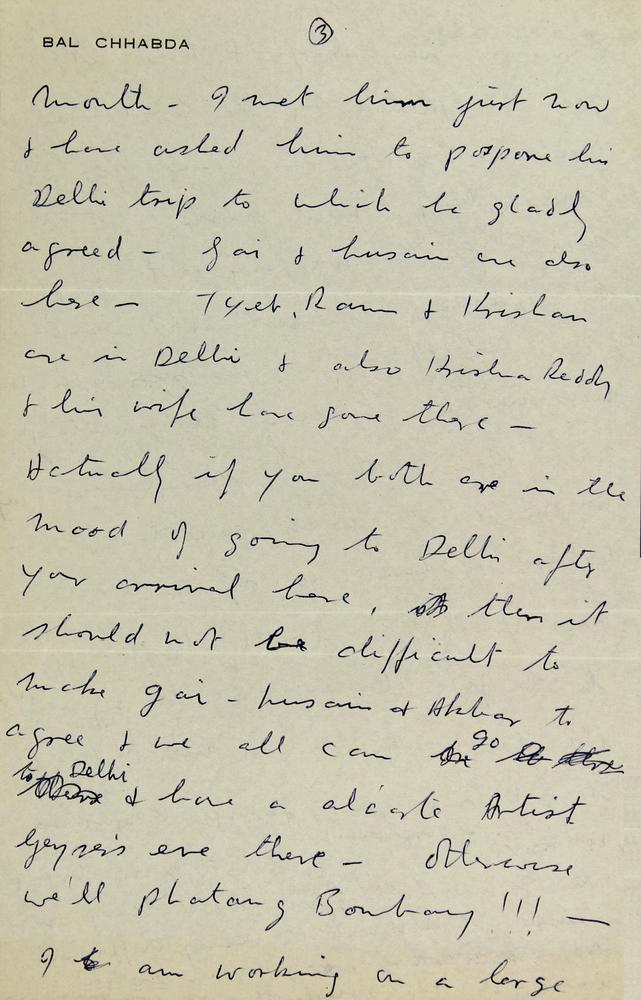 BAL CHHABDA
3
month - I met him just now
& have asked him to pospone his
Delhi trip to which he gladly
agreed - Gai & husain are also
here - Tyeb, Ram & Krishan
are in Delhi & also Krishna Reddy
& his wife have gone there -
Actually if you both are in the
mood of going to Delhi after
your arrival here, then it
should not be difficult to
make gai - husain & Akbar to
agree & we all can go
to Delhi & have a Artist
eve there - Otherwise
we'll Bombay !!! -
I am working on a large